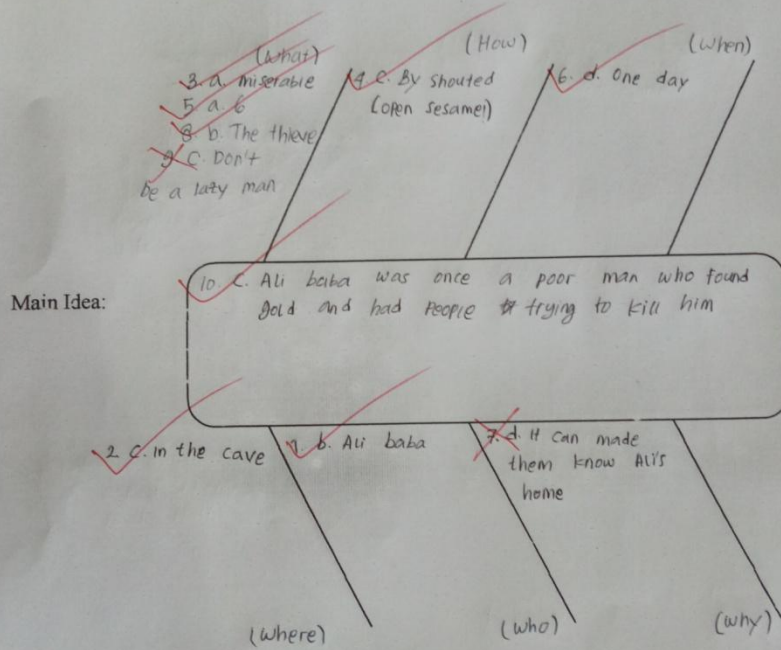 (What)
3. a. miserable
5. a. 6
8. b. The thieve
9. C. Don't
be a lazy man
(How)
4. c. By shouted
(open sesame!)
(when)
6. d. One day
Main Idea:
10. C. Ali baba was once a poor man who found
gold and had people trying to kill him
2. C. in the cave
(where)
1. b. Ali baba
(who)
7. d. It can made
them know Ali's
home
(why)